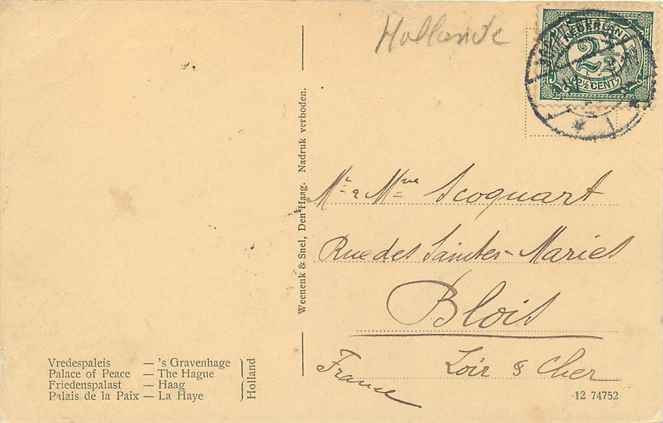 Hollande
NEDERLAND
2½
2½ CENT
Mr & Mme Scoquart
Rue des Saintes-Maries
Blois
Loir & Cher
France
Weenenk & Snel, Den Haag. Nadruk verboden.
Vredespaleis — 's Gravenhage
Palace of Peace — The Hague
Friedenspalast — Haag
Palais de la Paix — La Haye
Holland
12 74752